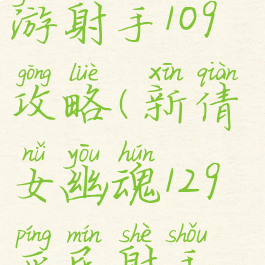 游射手109
gōng lüè xīn qiàn
攻略(新倩
nǚ yōu hún
女幽魂129
píng mín shè shǒu
平民射手